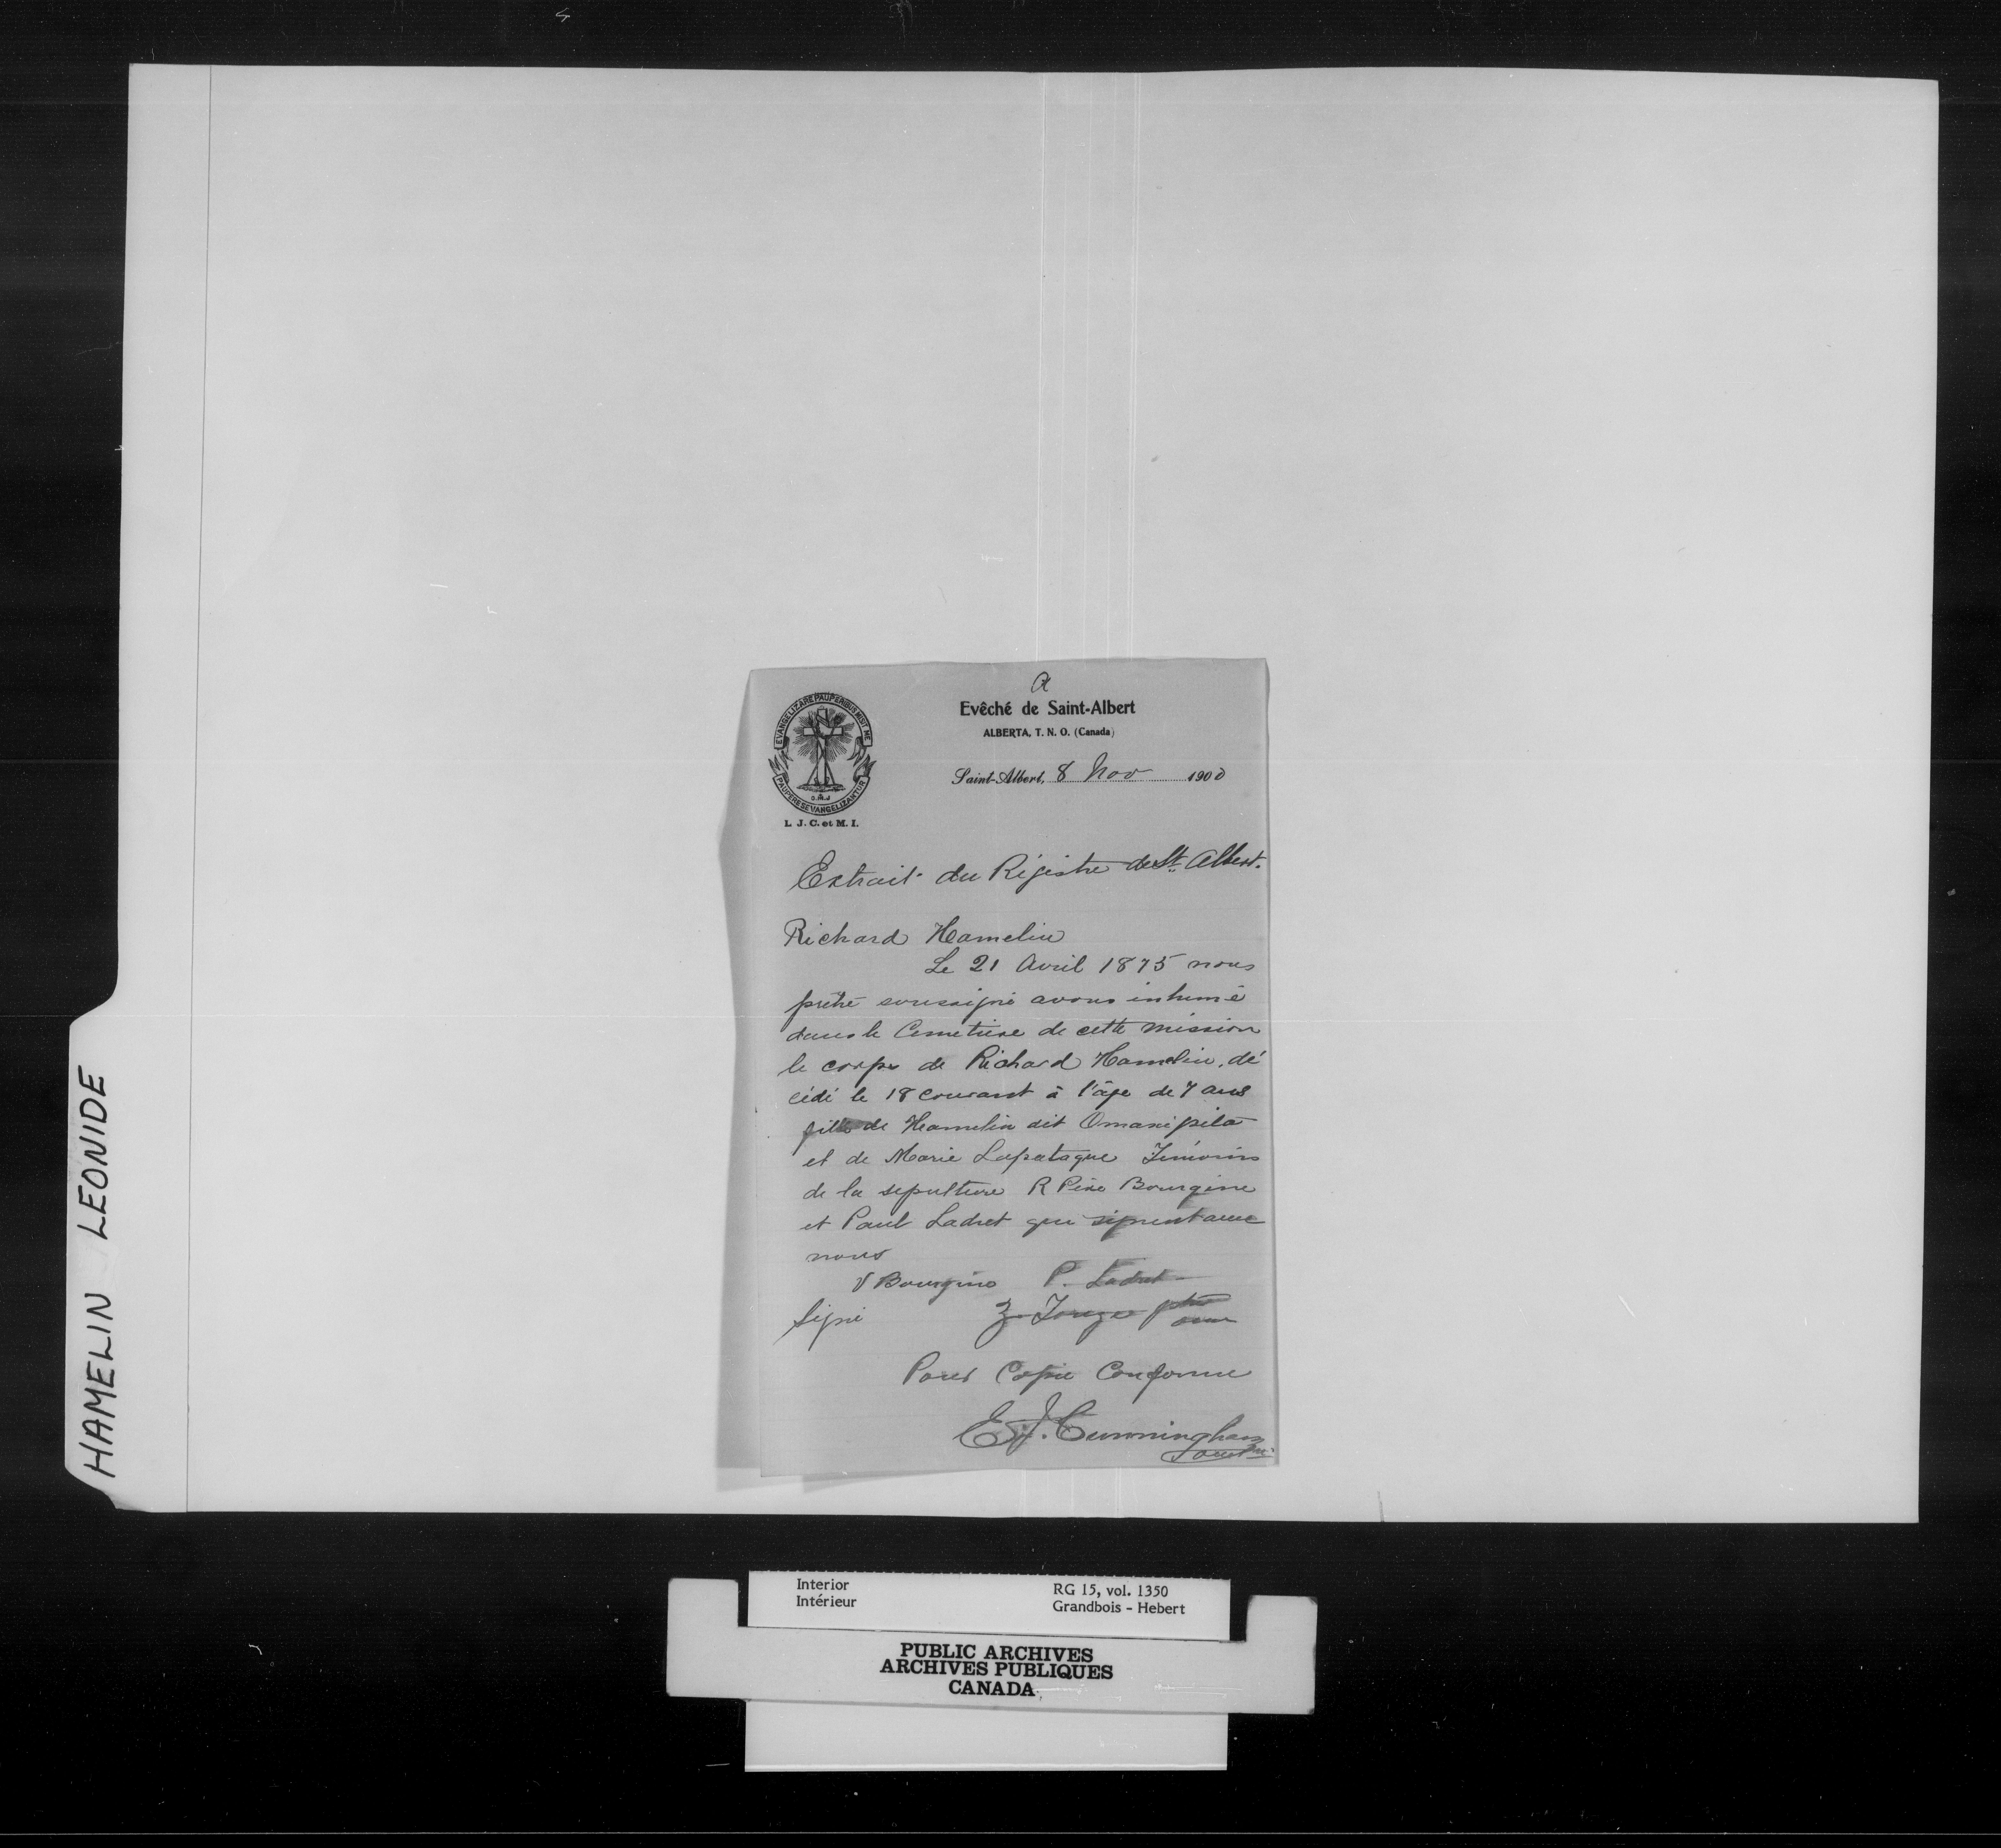 HAMELIN LEONIDE
a
Evêché de Saint-Albert
ALBERTA, T. N. O. (Canada)
EVANGELIZARE PAUPERIBUS MISIT ME
PAUPERES EVANGELIZANTUR
O.M.J
L. J. C. et M. I.
Saint-Albert, 8 Nov 1900
Extrait du Régistre de St. Albert.
Richard Hamelin
Le 21 Avril 1875 nous
prêtre soussigné avons inhumé
dans le Cemetiere de cette mission
le corps de Richard Hamelin, dé
cédé le 18 courant à l'âge de 7 ans
fils de Hamelin dit Omanipita
et de Marie Lapataque Témoins
de la sepulture R Père Bourgine
et Paul Ladret qui signent avec
nous
V Bourgine P. Ladret
Signé ptre
omi
Pour Copie Conforme
E J. Cunningham
omi
Interior
Intérieur
RG 15, vol. 1350
Grandbois - Hebert
PUBLIC ARCHIVES
ARCHIVES PUBLIQUES
CANADA